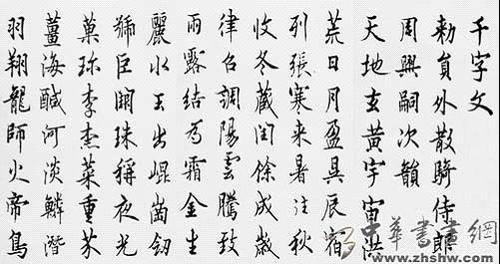 千字文
勅員外散騎侍郎
周興嗣次韻
天地玄黃宇宙洪
荒日月盈昃辰宿
列張寒来暑往秋
收冬藏閏餘成歲
律召調陽雲騰致
雨露結為霜金生
麗水玉出崐崗劒
號巨闕珠稱夜光
菓珍李柰菜重芥
薑海醎河淡鱗潛
羽翔龍師火帝鳥
中華書畫網
www.zhshw.com